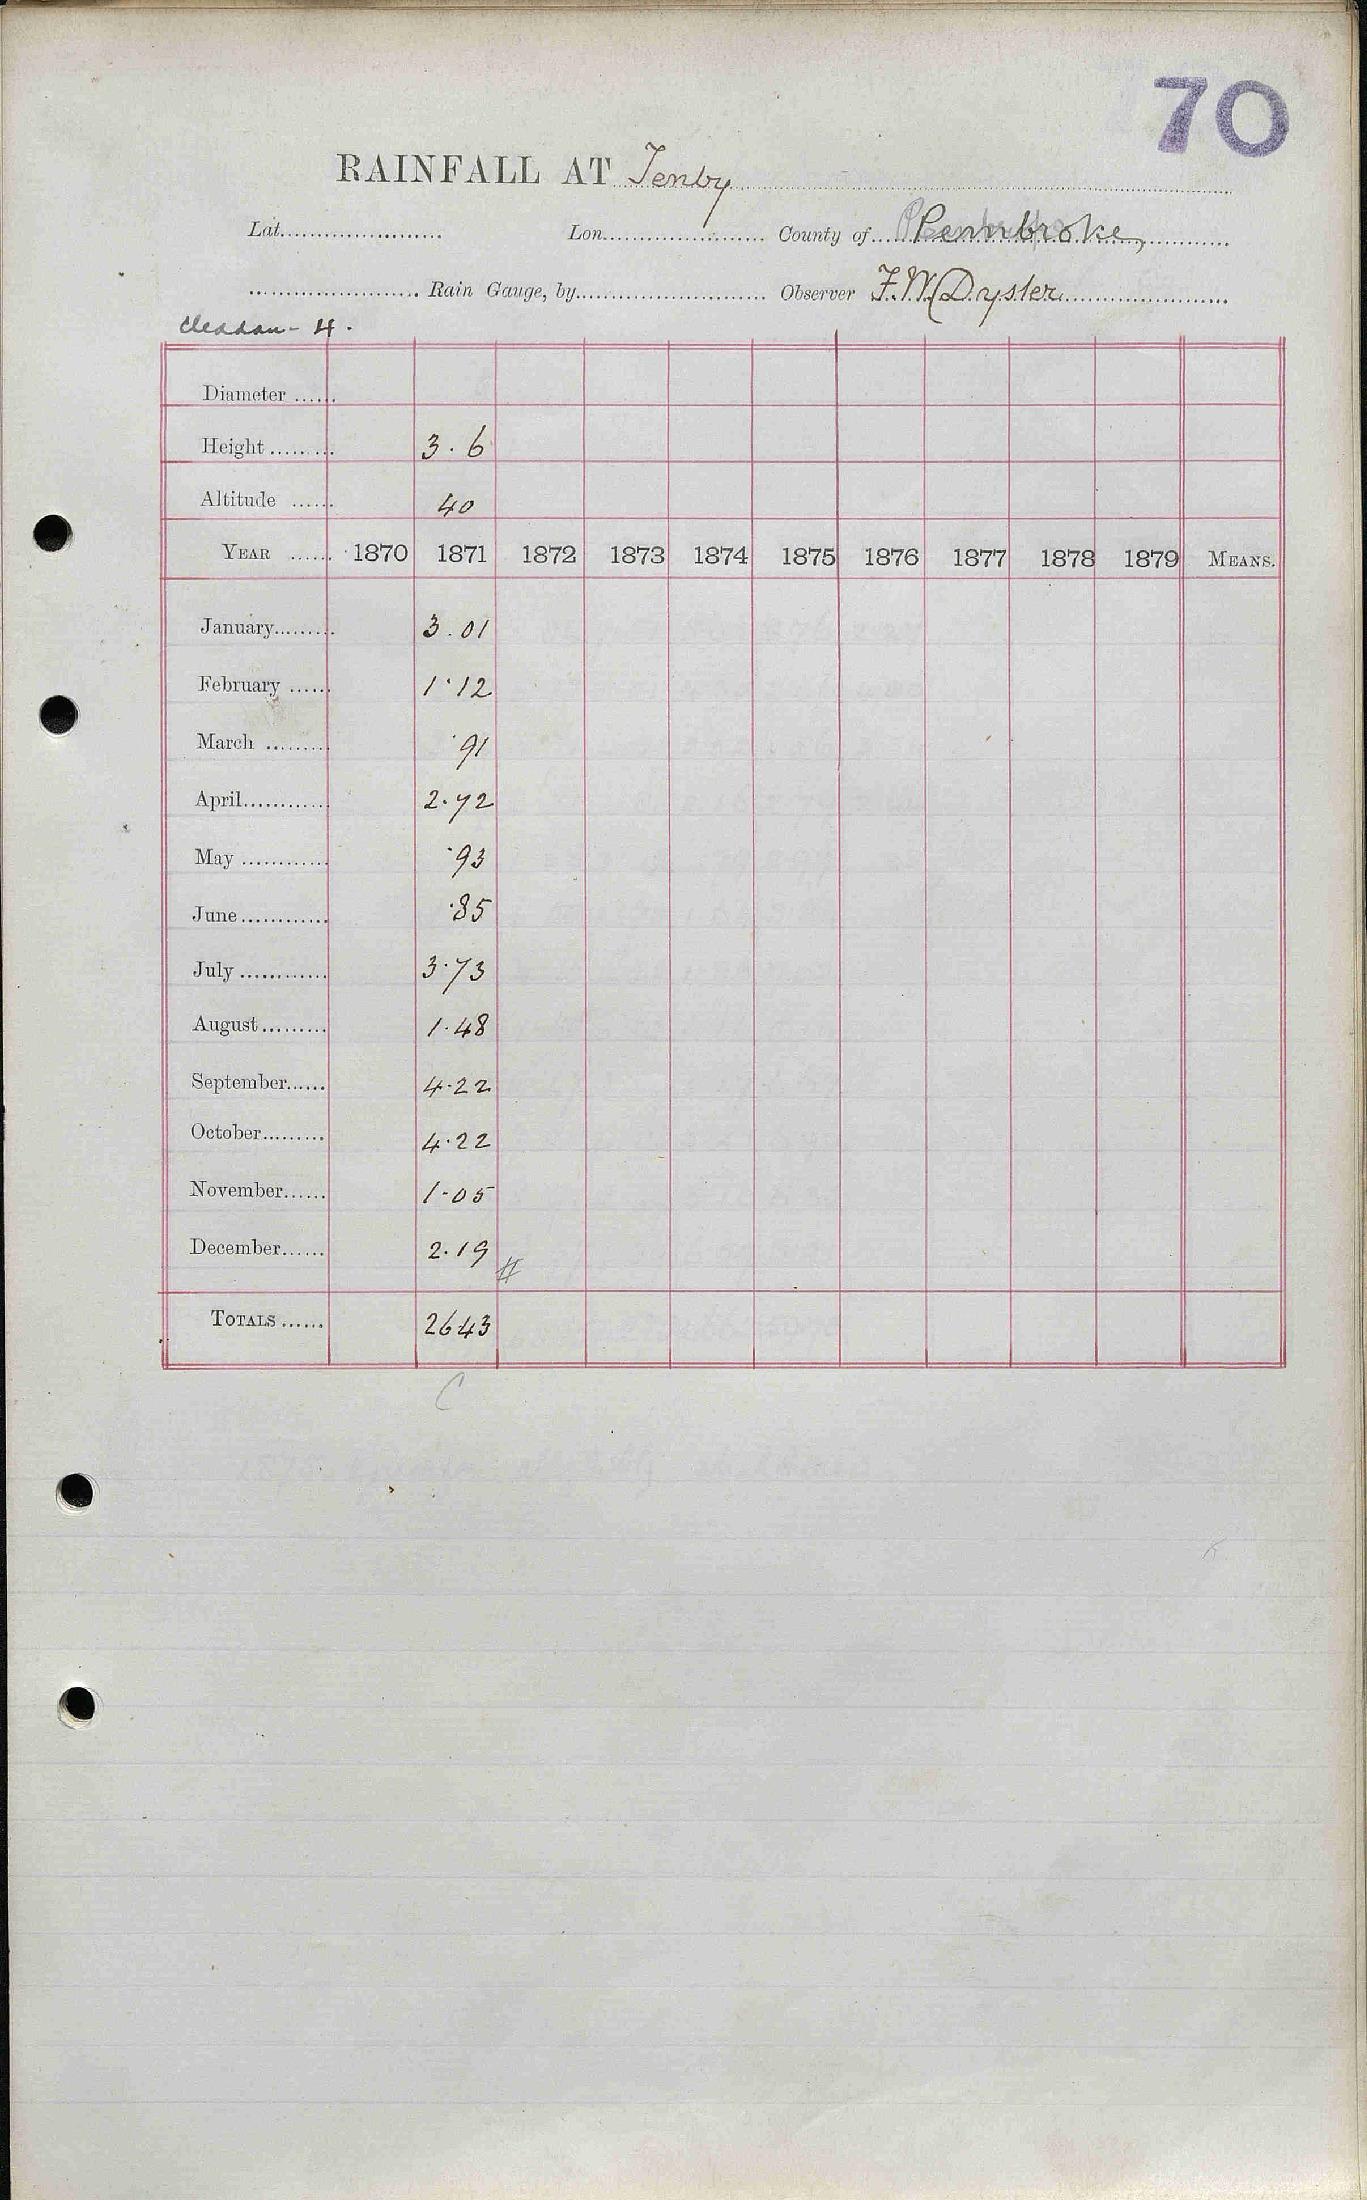 70
RAINFALL AT Tenby
Lat. Lon. County of Pembroke,
Rain Gauge, by Observer F. W. Dyster
Cleddau - 4.
Diameter
Height 3.6
Altitude 40
YEAR 1870 1871 1872 1873 1874 1875 1876 1877 1878 1879 MEANS.
January 3.01
February 1.12
March .91
April 2.72
May .93
June .85
July 3.73
August 1.48
September 4.22
October 4.22
November 1.05
December 2.19 #
TOTALS 2643
C